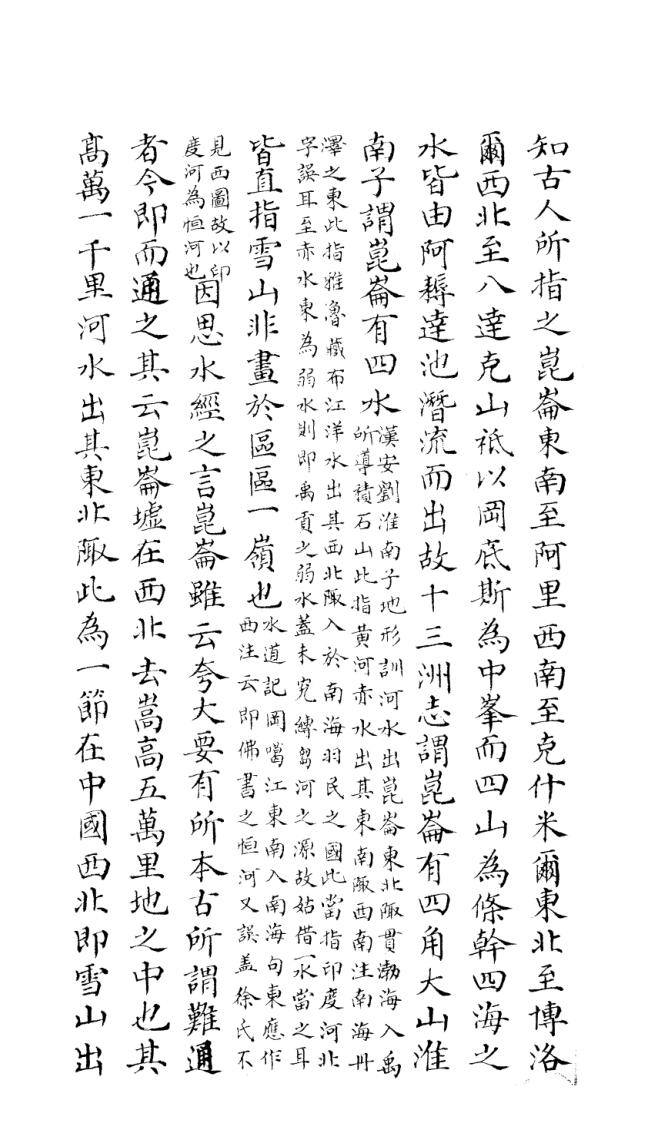 知古人所指之崑崙東南至阿里西南至克什米爾東北至博洛
爾西北至八達克山袛以岡底斯為中峯而四山為條幹四海之
水皆由阿耨達池潛流而出故十三洲志謂崑崙有四角大山淮
南子謂崑崙有四水
漢安劉淮南子地形訓河水出崑崙東北陬貫渤海入禹
所導積石山此指黄河赤水出其東南陬西南注南海丹
澤之東此指雅魯藏布江洋水出其西北陬入於南海羽民之國此當指印度河北
字誤耳至赤水東為弱水則即禹貢之弱水蓋未究縛芻河之源故姑借一水當之耳
皆直指雪山非畫於區區一嶺也
水道記岡噶江東南入南海句東應作
西注云即佛書之恒河又誤盖徐氏不
見西圖故以印
度河為恒河也
因思水經之言崑崙雖云夸大要有所本古所謂難通
者今即而通之其云崑崙墟在西北去嵩高五萬里地之中也其
高萬一千里河水出其東北陬此為一節在中國西北即雪山出